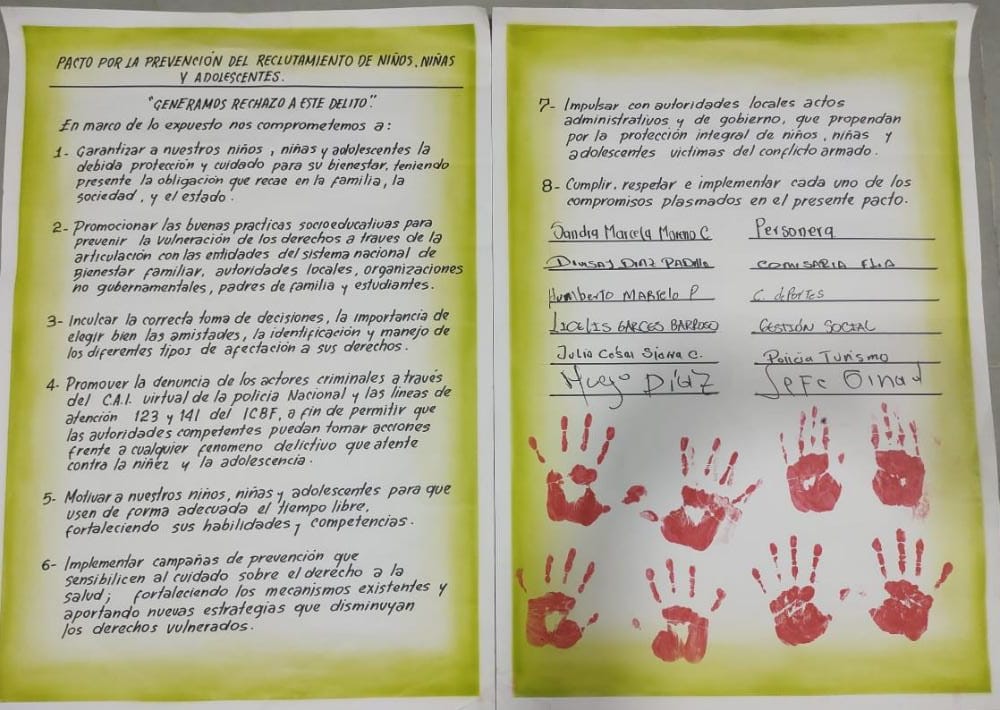 PACTO POR LA PREVENCIÓN DEL RECLUTAMIENTO DE NIÑOS, NIÑAS
Y ADOLESCENTES.
"GENERAMOS RECHAZO A ESTE DELITO."
En marco de lo expuesto nos comprometemos a:
1- Garantizar a nuestros niños, niñas y adolescentes la
debida protección y cuidado para su bienestar, teniendo
presente la obligación que recae en la familia, la
sociedad, y el estado.
2- Promocionar las buenas practicas socioeducativas para
prevenir la vulneración de los derechos a traves de la
articulación con las entidades del sistema nacional de
Bienestar familiar, autoridades locales, organizaciones
no gubernamentales, padres de familia y estudiantes.
3- Inculcar la correcta toma de decisiones, la importancia de
elegir bien las amistades, la identificación y manejo de
los diferentes tipos de afectación a sus derechos.
4- Promover la denuncia de los actores criminales a través
del C.A.I. virtual de la policia Nacional y las líneas de
atención 123 y 141 del ICBF, a fin de permitir que
las autoridades competentes puedan tomar acciones
frente a cualquier fenomeno delictivo que atente
contra la niñez y la adolescencia.
5- Motivar a nuestros niños, niñas y adolescentes para que
usen de forma adecuada el tiempo libre,
fortaleciendo sus habilidades y competencias.
6- Implementar campañas de prevención que
sensibilicen al cuidado sobre el derecho a la
salud; fortaleciendo los mecanismos existentes y
aportando nuevas estrategias que disminuyan
los derechos vulnerados.
7- Impulsar con autoridades locales actos
administrativos y de gobierno, que propendan
por la protección integral de niños, niñas y
adolescentes victimas del conflicto armado.
8- Cumplir, respetar e implementar cada uno de los
compromisos plasmados en el presente pacto.
Sandra Marcela Moreno C Personera
Diaz Padilla COMISARIA FLIA
Humberto Martelo P C. deportes
Licelis Garces Barroso GESTIÓN SOCIAL
Julio Cesar Sierra C. Policia Turismo
Hugo Díaz Jefe